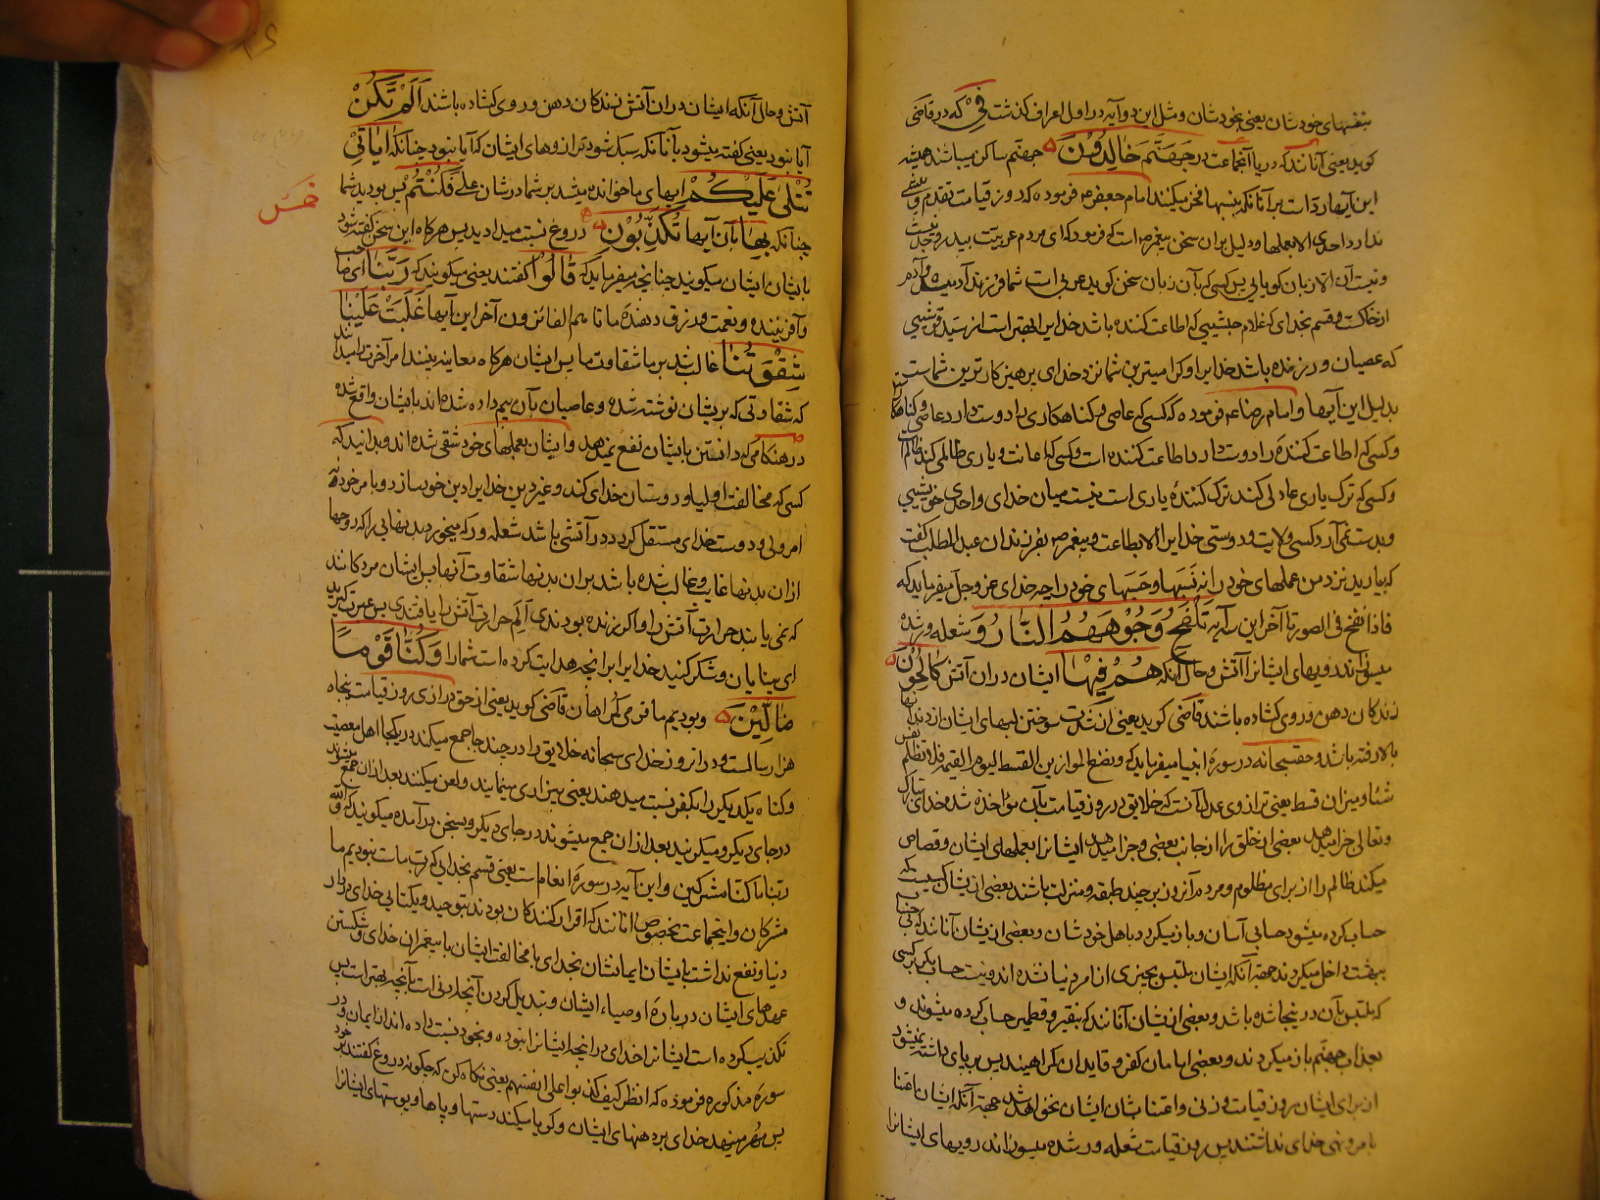 بنفسهای خودشان یعنی بخودشان و مثل این دو آیه در اول اعراف گذشت فِیْ که در قاضی
کوید یعنی آنانند که در یا آنجماعت در جَهَنَّمَ خَالِدُوْنَ جهنّم ساکن میباشند همیشه
این آیها رد است بر آنانکه بنسبها فخر میکنند امام جعفر ع م فرموده که در روز قیامت تقدم
ندارد احدی الا بعملها و دلیل بران سخن پیغمبر ص است که فرمود که ای مردم عربیت پدر و جد نیست
و نیست آن الا زبان کویا پس کسی که بآن زبان سخن کوید عربی است شما فرزند آدمید و آدم
از خاکست و قسم بخدای که غلام حبشیی که اطاعت کننده باشد خدایرا بهتر است از سید قریشیی
که عصیان ورزنده باشد خدایرا و کرامیترین شما نزد خدای پرهیزکارترین شماست
بدلیل این آیها و امام رضا ع م فرموده که کسی که عاصی و کناهکاری را دوست دارد عاصی و کناهکار
و کسی که اطاعت کننده را دوست دارد اطاعت کننده است و کسی که اعانت و یاری ظالمی کند ظالم است
و کسی که ترک یاری عادلی کند ترک کنندهٔ یاری است نیست میان خدای و احدی خویشیی
و بدست نمی آرد کسی ولایت و دوستی خدایرا الا بطاعت و پیغمبر ص بفرزندان عبدالمطلب گفت
که بیارید نزد من عملهای خود را نه نسبها و حسبهای خود را چه خدای عز و جل میفرماید که
فاذا نفخ فی الصور تا آخر این سه آیه تَلْفَحُ وُجُوْهَهُمُ النَّارُ وَ شعله ورشده
میسوزانند رویهای ایشانرا آتش و حال آنکه هُمْ فِیْهَا ایشان دران آتش کَالِحُوْنَ
زنندکان دهن و روی کشاده باشند قاضی کوید یعنی از شدت سوختن لبهای ایشان از دندانها
بالا رفته باشد و حقسبحانه در سورهٔ انبیا میفرماید که و نضع الموازین القسط لیوم القیمة فلا تظلم نفس
شئا و میزان قسط یعنی ترازوی عدل آنست که خلایق در روز قیامت بآن مؤاخذه شد خدای تبارک
و تعالی جزا میدهد بعضی از خلق را از جانب بعضی و جزا میدهد ایشانرا بعملهای ایشان و قصاص
میکند ظالم را از برای مظلوم و مردم آنروز بر چند طبقه و منزلت باشند بعضی از یشان کسیست که
حساب کرده میشود حسابی آسان و باز میکردد باهل خودشان و بعضی از یشان آنانند که بی حساب
ببهشت داخل میکردند جهة آنکه ایشان ملتبس بچیزی از امر دنیا نشده اند و نیست حساب مکر بر کسی
که ملتبس بآن در ینجا شده باشد و بعضی از یشان آنانند که بنقیر و قطمیر حساب کرده میشوند و
بعذاب جهنّم باز میکردند و بعضی امامان کفر و قایدان کمراهیند پس بر پای داشته نمیشود
از برای ایشان روز قیامت وزنی و اعتنا بشان ایشان نخواهد شد جهة آنکه ایشان اعتنا
بامر و نهی خدای نداشتند پس روز قیامت شعله ورشده میسوزاند رویهای ایشانرا
آتش و حال آنکه ایشان دران آتش زنندکان دهن و روی کشاده باشند اَلَمْ تَکُنْ
آیا نبود یعنی گفته میشود بآنانکه سبک شود ترازوهای ایشان که آیا نبود چنانکه اٰیَاتِیْ
تُتْلٰی عَلَیْکُمْ ایهای ما خوانده میشد بر شما در شان علی فَکُنْتُمْ پس بودید شما
چنانکه بِهَا بآن آیها تُکَذِّبُوْنَ دروغ نسبت میدادید پس هرکاه این سخن گفته شود
بایشان ایشان میکویند چنانچه میفرماید که قَالُوْا گفتند یعنی میکویند که رَبَّنَا ای صاحب
و آفریننده و نعمت و رزق دهندهٔ ما تا هم الفائزون آخر این آیها غَلَبَتْ عَلَیْنَا
شِقْوَتُنَا غالب شد بر ما شقاوت ما پس ایشان هرکاه معاینه بینند امر آخرت را میدانند
که شقاوتی که بریشان نوشته شده و عاصیان بآن بیم داده شده اند بایشان واقع شده
در هنکامی که دانستن بایشان نفع نمیدهد و ایشان بعملهای خود شقی شده اند و بدانید که
کسی که مخالفت اولیا و دوستان خدای کند و غیر دین خدایرا دین خود سازد و بامر خود نه
امر ولی و دوست خدای مستقل کردد در آتشی باشد شعله ور که میخورد بدنهایی را که روحها
ازان بدنها غایب و غالب شده باشد بران بدنها شقاوت آنها پس ایشان مردکانند
که نمی یابند حرارت آتش را و اکر زنده بودندی اَلَمِ حرارت آتش را یافتندی پس عبرت کیرید
ای بینایان و شکر کنید خدایرا بر آنچه هدایت کرده است شما را وَکُنَّا قَوْمًا
ضَالِّیْنَ و بودیم ما قومی کمراهان قاضی کوید یعنی از حق درازی روز قیامت پنجاه
هزار سالست و دران روز خدای سبحانه خلایق را در چند جا جمع میکند در یکجا اهل معصیت
و کناه یکدیکر را بکفر نسبت میدهند یعنی بیزاری مینمایند و لعن میکنند بعد ازان جمع میشوند
در جای دیکر و میکریند بعد ازان جمع میشوند در جای دیکر و بسخن درآمده میکویند که والله
ربنا ما کنا مشرکین و این آیه در سورهٔ انعامست یعنی قسم بخدایی که رب ماست نبودیم ما
مشرکان و اینجماعت مخصوص آنانند که اقرار کنندکان بودند بتوحید و یکتایی خدای در دار
دنیا و نفع نداشت بایشان ایمانشان بخدای با مخالفت ایشان با پیغمبران خدای و شکستن
عهدهای ایشان دربارهٔ اوصیاء ایشان و تبدیل کردن آنچه ادنی است بآنچه بهتر است پس
تکذیب کرده است ایشانرا خدای در آنچه ایشانرا بوده و بخود نسبت داده اند از ایمان و در
سورهٔ مذکوره فرموده که انظر کیف کذبوا علی انفسهم یعنی نکاه کن که چکونه دروغ گفتند بر خود
پس مُهر مینهد خدای بر دهنهای ایشان و کویا میکند دستها و پاها و پوستهای ایشانرا
خمس